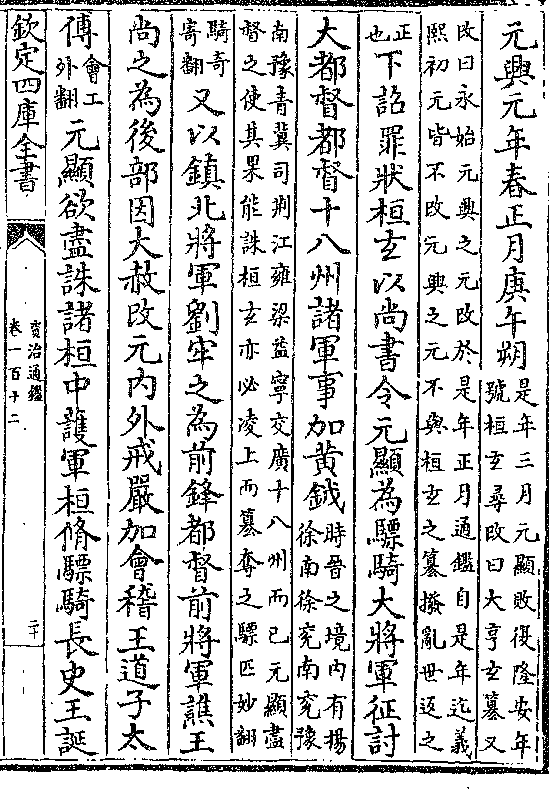 元興元年春正月庚午朔是年三月元顯敗復隆安年號桓𤣥尋改曰大亨𤣥簒又
改曰永始元興之元改於是年正月通鑑自是年迄義熙初元皆不改元興之元不與桓𤣥之簒撥亂世返之
正也下詔罪狀桓𤣥以尚書令元顯為驃騎大將軍征討
大都督都督十八州諸軍事加黄鉞時晉之境内有揚徐南徐兖南兖豫
南豫青冀司荆江雍梁益寧交廣十八州而已元顯盡督之使其果能誅桓𤣥亦必凌上而簒奪之驃匹妙翻
騎奇寄翻又以鎮北將軍劉牢之為前鋒都督前將軍譙王
尚之為後部因大赦改元内外戒嚴加會稽王道子太
傅會工外翻元顯欲盡誅諸桓中䕶軍桓脩驃騎長史王誕
欽定四庫全書
資治通鑑
卷一百十二
二十